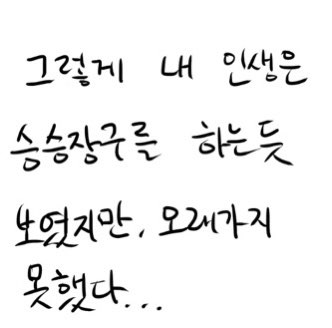 그렇게 내 인생은
승승장구를 하는듯
보였지만, 오래가지
못했다...